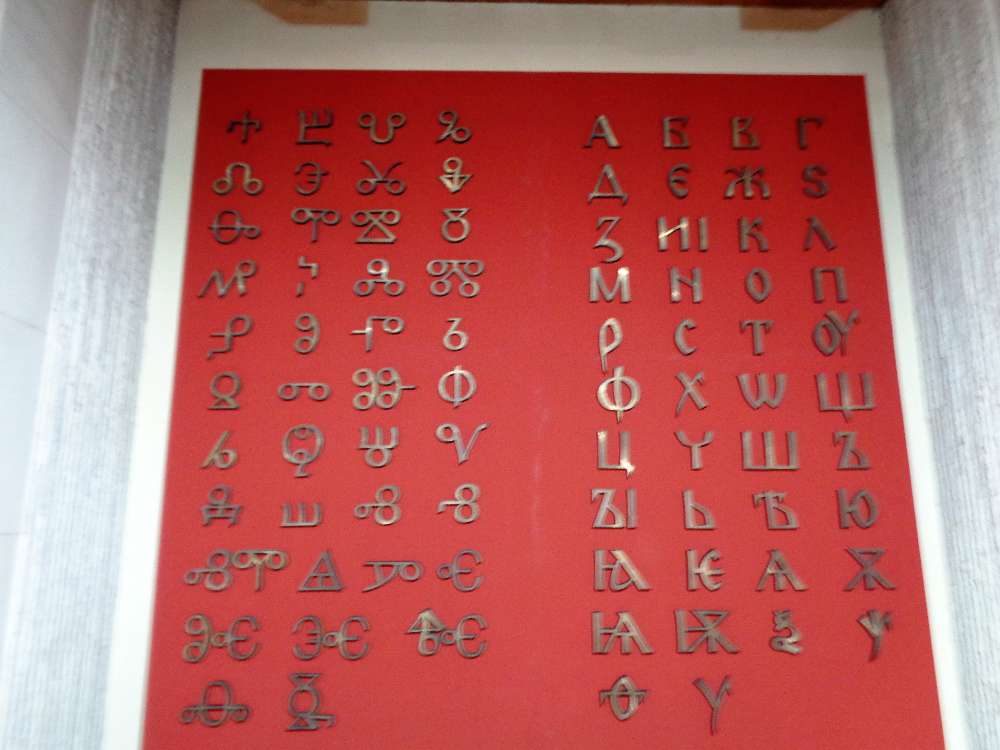 Ⰰ Ⰱ Ⰲ Ⰳ
Ⰴ Ⰵ Ⰶ Ⰷ
Ⰸ Ⰺ Ⰻ Ⰹ
Ⰼ Ⰽ Ⰾ Ⰿ
Ⱀ Ⱁ Ⱂ Ⱃ
Ⱄ Ⱅ Ⱆ Ⱇ
Ⱈ Ⱉ Ⱋ Ⱌ
Ⱍ Ⱎ Ⱏ Ⱐ
ⰟⰊ Ⱑ Ⱓ Ⱔ
Ⱘ Ⱗ Ⱙ
Ⱚ Ⱛ
А Б В Г
Д Є Ж Ѕ
Ꙁ ИІ К Л
М Н О П
Р С Т Ѹ
Ф Х Ѡ Щ
Ц Ч Ш Ъ
ЪІ Ь Ѣ Ю
Ꙗ Ѥ Ѧ Ѫ
Ѩ Ѭ Ѯ Ѱ
Ѳ Ѵ